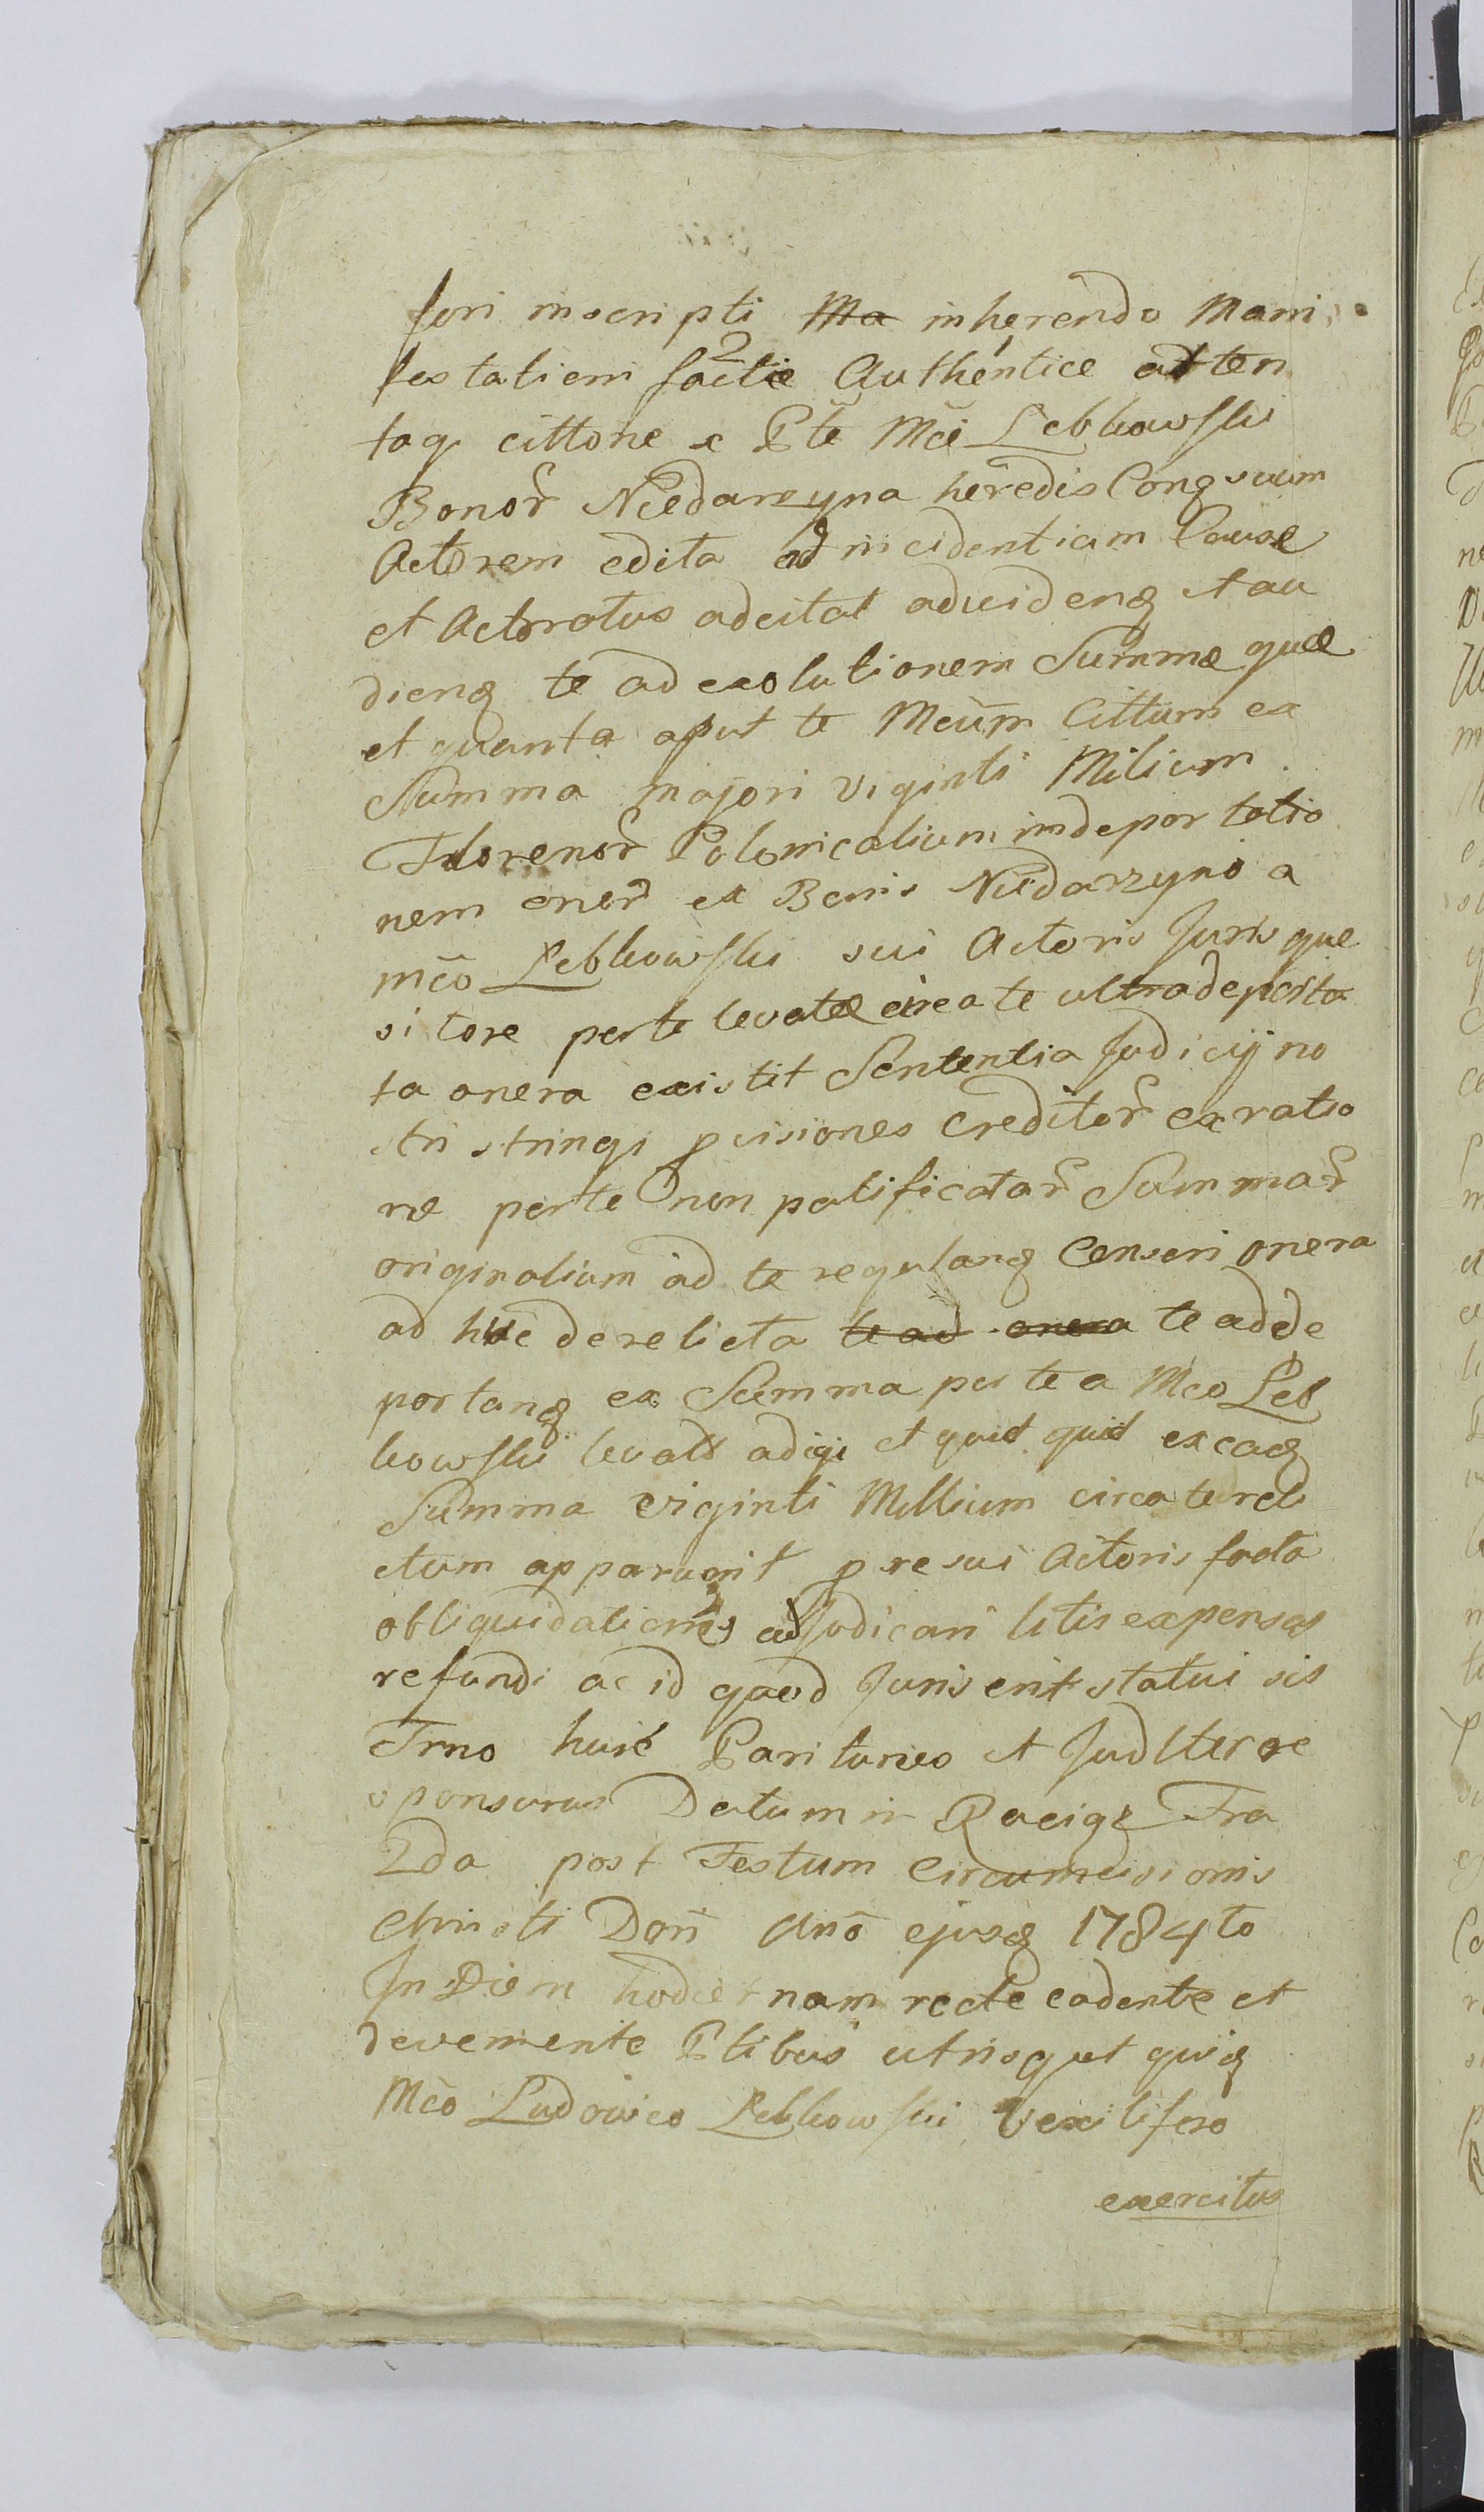 fori inscripti Ma inherendo Mani
festationi factæ Authentice adten
taq cittone e Pte Mci Lebkowski
Bonor Niedarzyna heredis Conqsuum
Actorem edita ad incidentiam Causæ
et Actoratus adcitat advidenq et au
dienq te ad exolutionem Summæ quæ
et quanta aput te Mcum Cittum ex
Summa majori viginti Milium
Florenor Polonicalium indeportatio
nem oner ex Bonis Niedarzyno a
mco Lebkowski sui Actoris Juris que
sitore per te levatæ circa te ultra deporta
ta onera existit Sententia Judicij no
stri stringi pvisiones Creditor ex ratio
ne per te non patificatar Summar
originalium ad te regulanq Censeri onera
ad huc derelicta te ad onera te adde
portanq ex Summa per te a Mco Leb
kowski levata adigi et quid quid ex eaq
Summa viginti Millium circa te reli
ctum apparuerit p re sui Actoris facta
obliquidatione adjudicari litis expensas
refundi ac id quod Juris erit statui sis
Trno huic Pariturus et Judlter re
sponsurus Datum in Raciąż Fra
2da post Festum Circumcisionis
Christi Dni Ano ejusq 1784to
In Diem hodiernam recte cadente et
deveniente Ptibus utrisq ut quiq
Mco Ludovico Lebkowski Vexilifero
exercitus